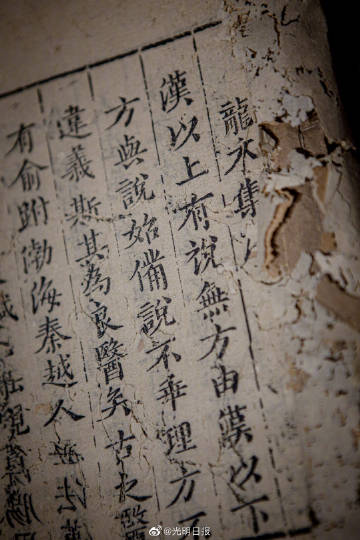 龍木集
漢以上有說無方由漢以下
方與說始備說不乖理方不
違義斯其為良醫矣古之醫
有俞跗渤海秦越人
@光明日报